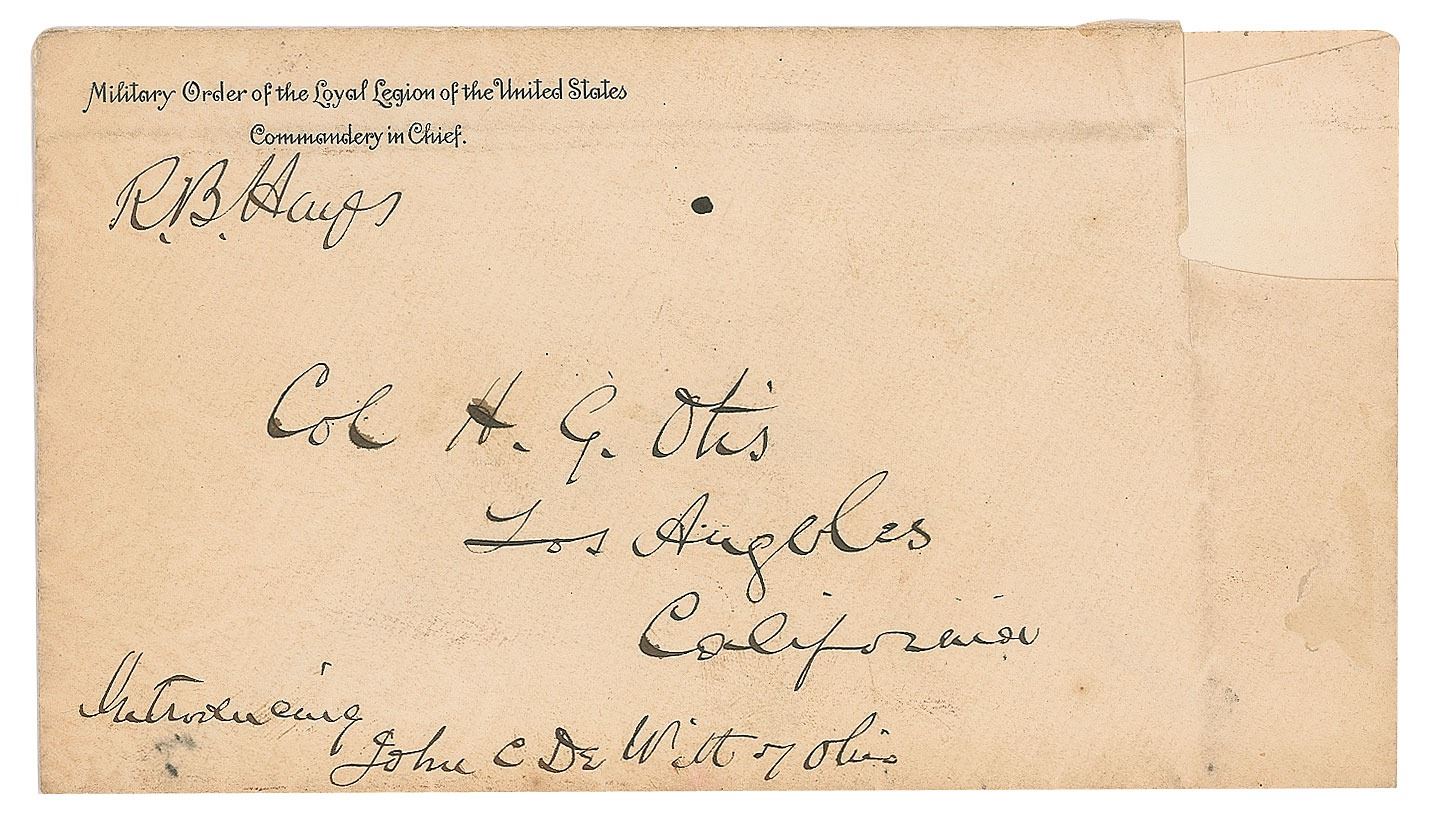 Military Order of the Loyal Legion of the United States
Commandery in Chief.
R. B. Hayes
Col H. G. Otis
Los Angeles
California
Introducing
John C De Witt of Ohio